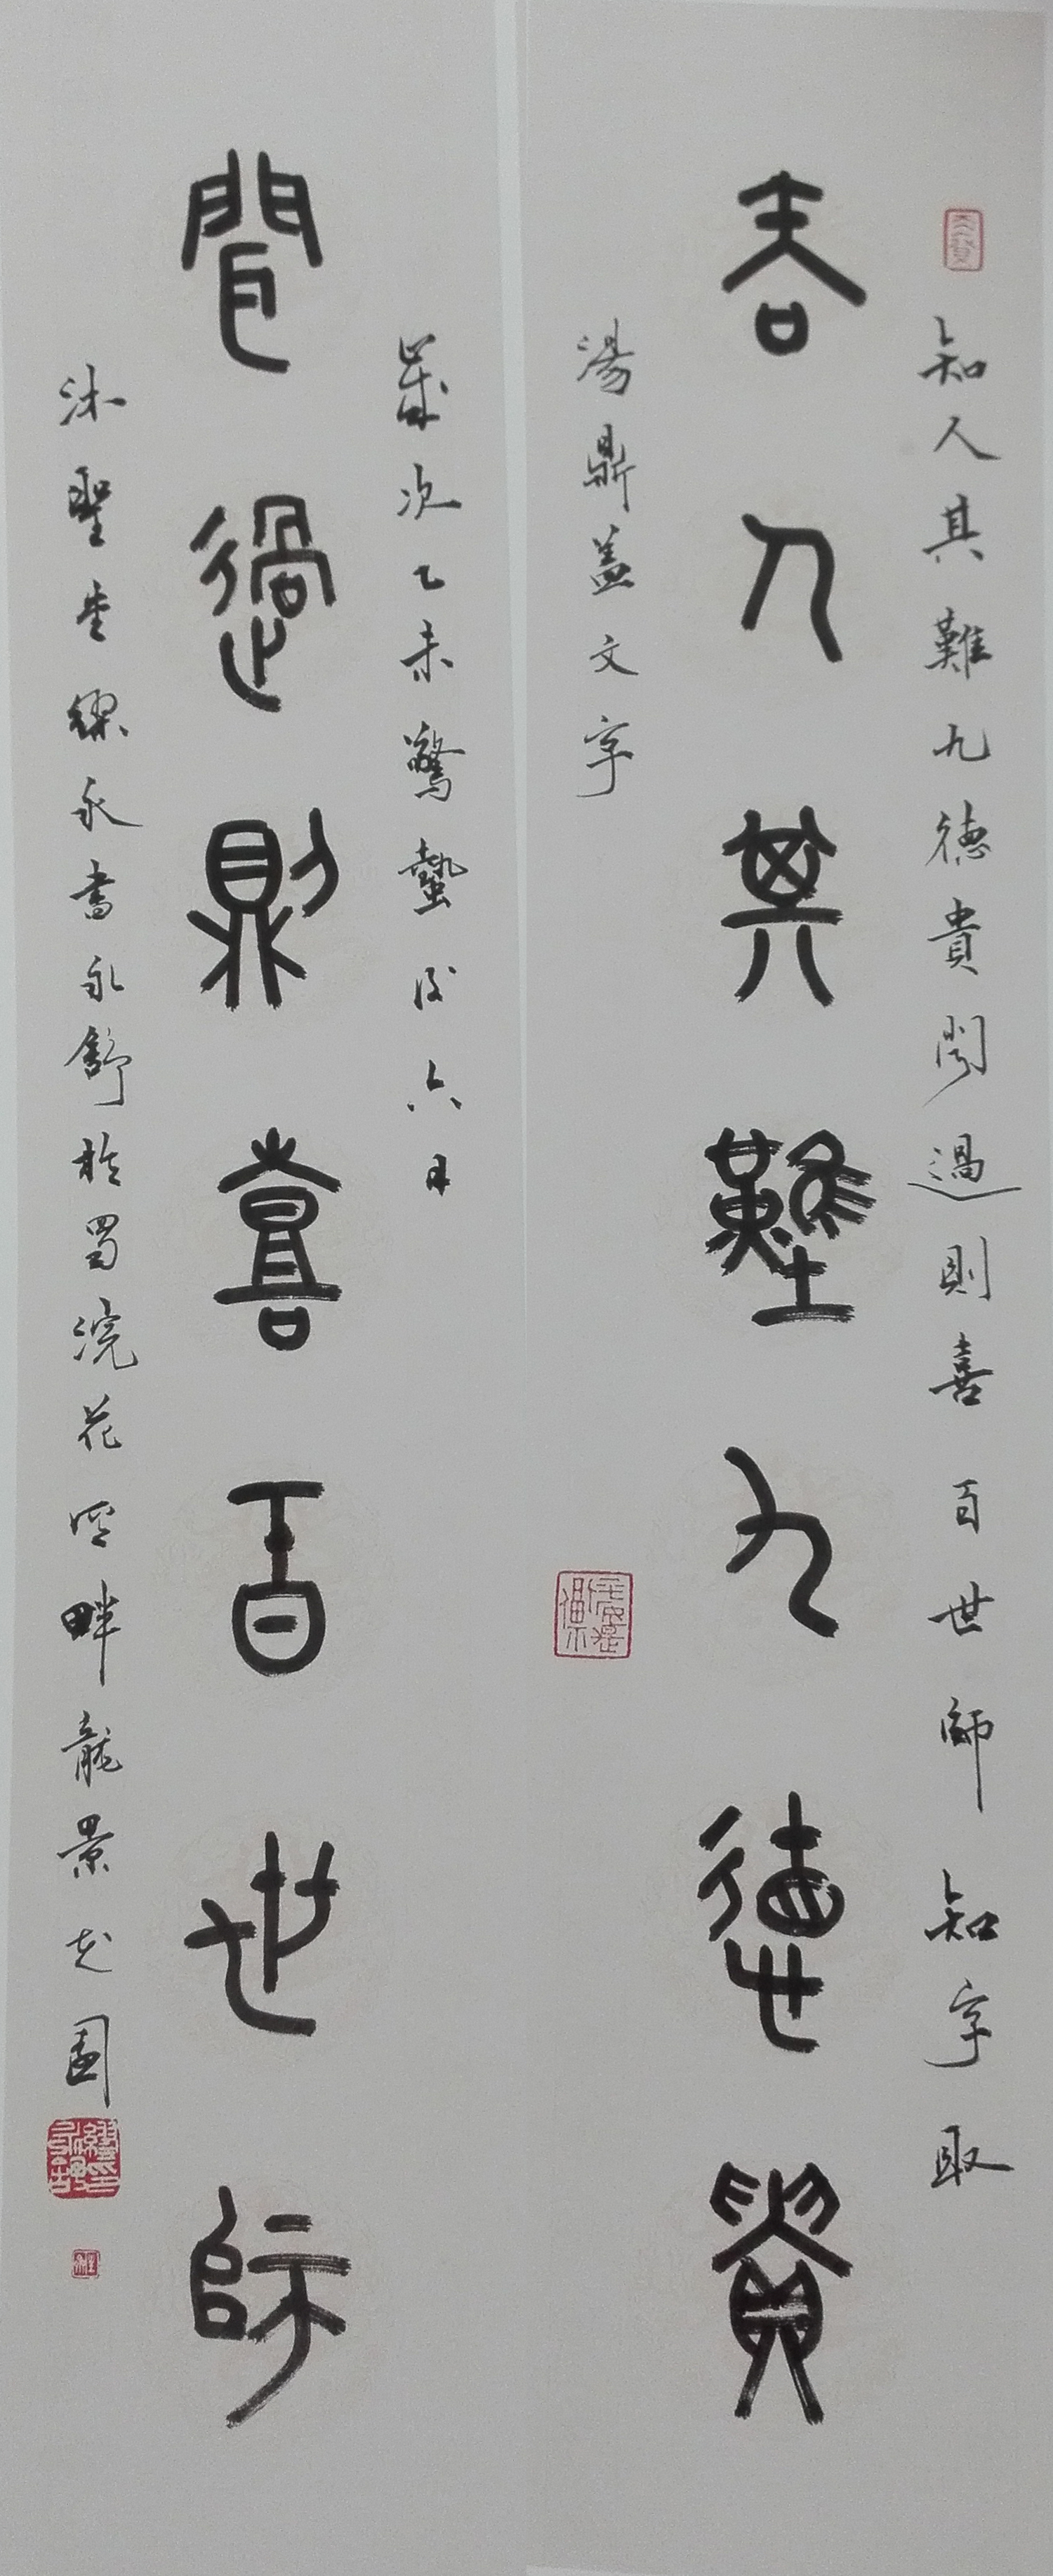 知人其難九德貴聞過則喜百世師知字取
知人其難九德貴
湯鼎盖文字
歲次乙未驚蟄後六日
聞過則喜百世師
沐聖堂繆永書永舒於蜀浣花溪畔龍景花園